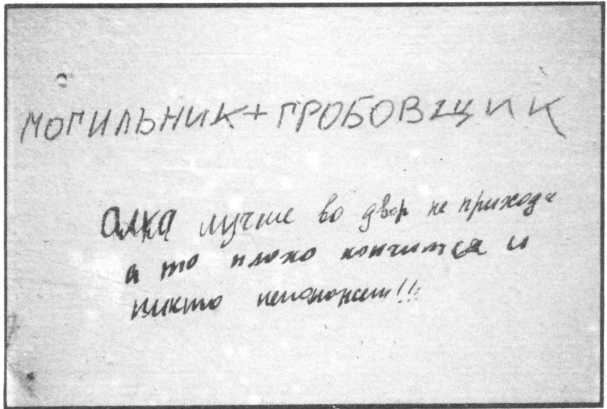 МОГИЛЬНИК+ГРОБОВЩИК
Алка лучше во двор не приходи
а то плохо кончится и
никто непоможет!!!